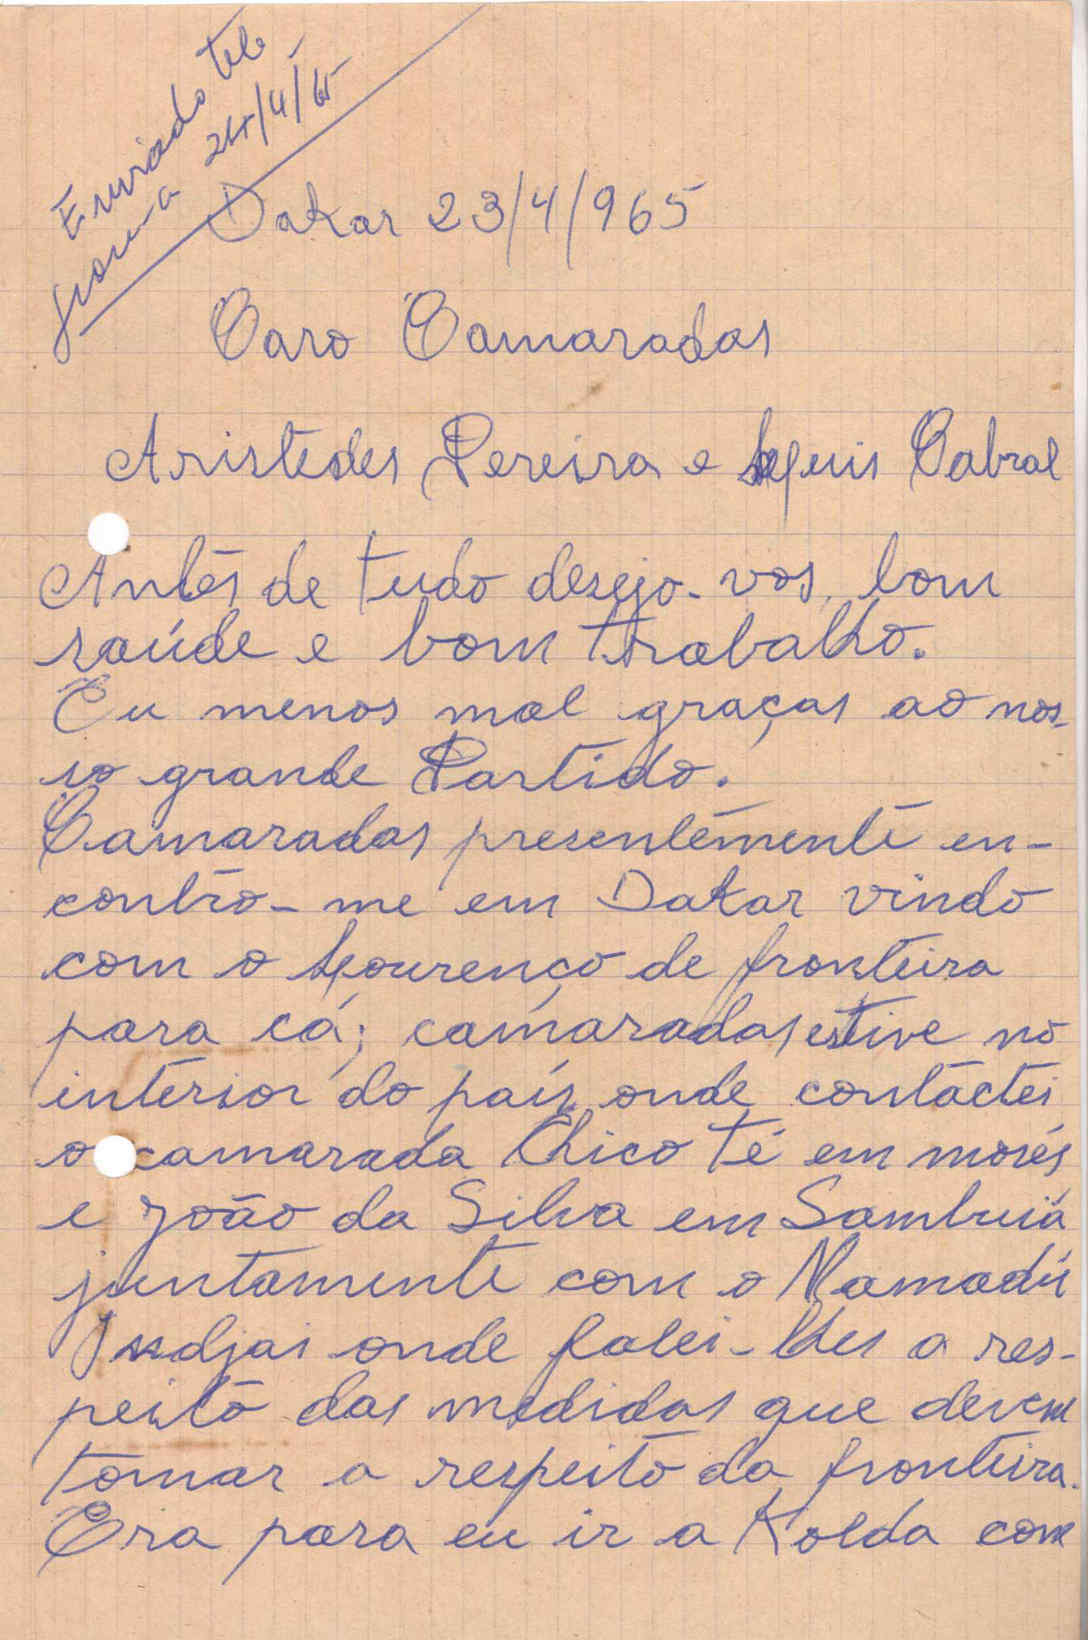 Enviado tele-
grama 24/4/65
Dakar 23/4/965
Caro Camaradas
Aristedes Pereira e Luis Cabral
Antes de tudo desejo-vos, bom
saúde e bom trabalho.
Eu menos mal graças ao nos-
so grande Partido.
Camaradas presentemente en-
contro-me em Dakar vindo
com o Lourenço de fronteira
para cá; camaradas estive no
interior do país onde contactei
o camarada Chico té em morés
e João da Silva em Sambuiá
juntamente com o Mamadú
Indjai onde falei-lhes a res-
peito das medidas que devem
tomar a respeito da fronteira.
Era para eu ir a Kolda com